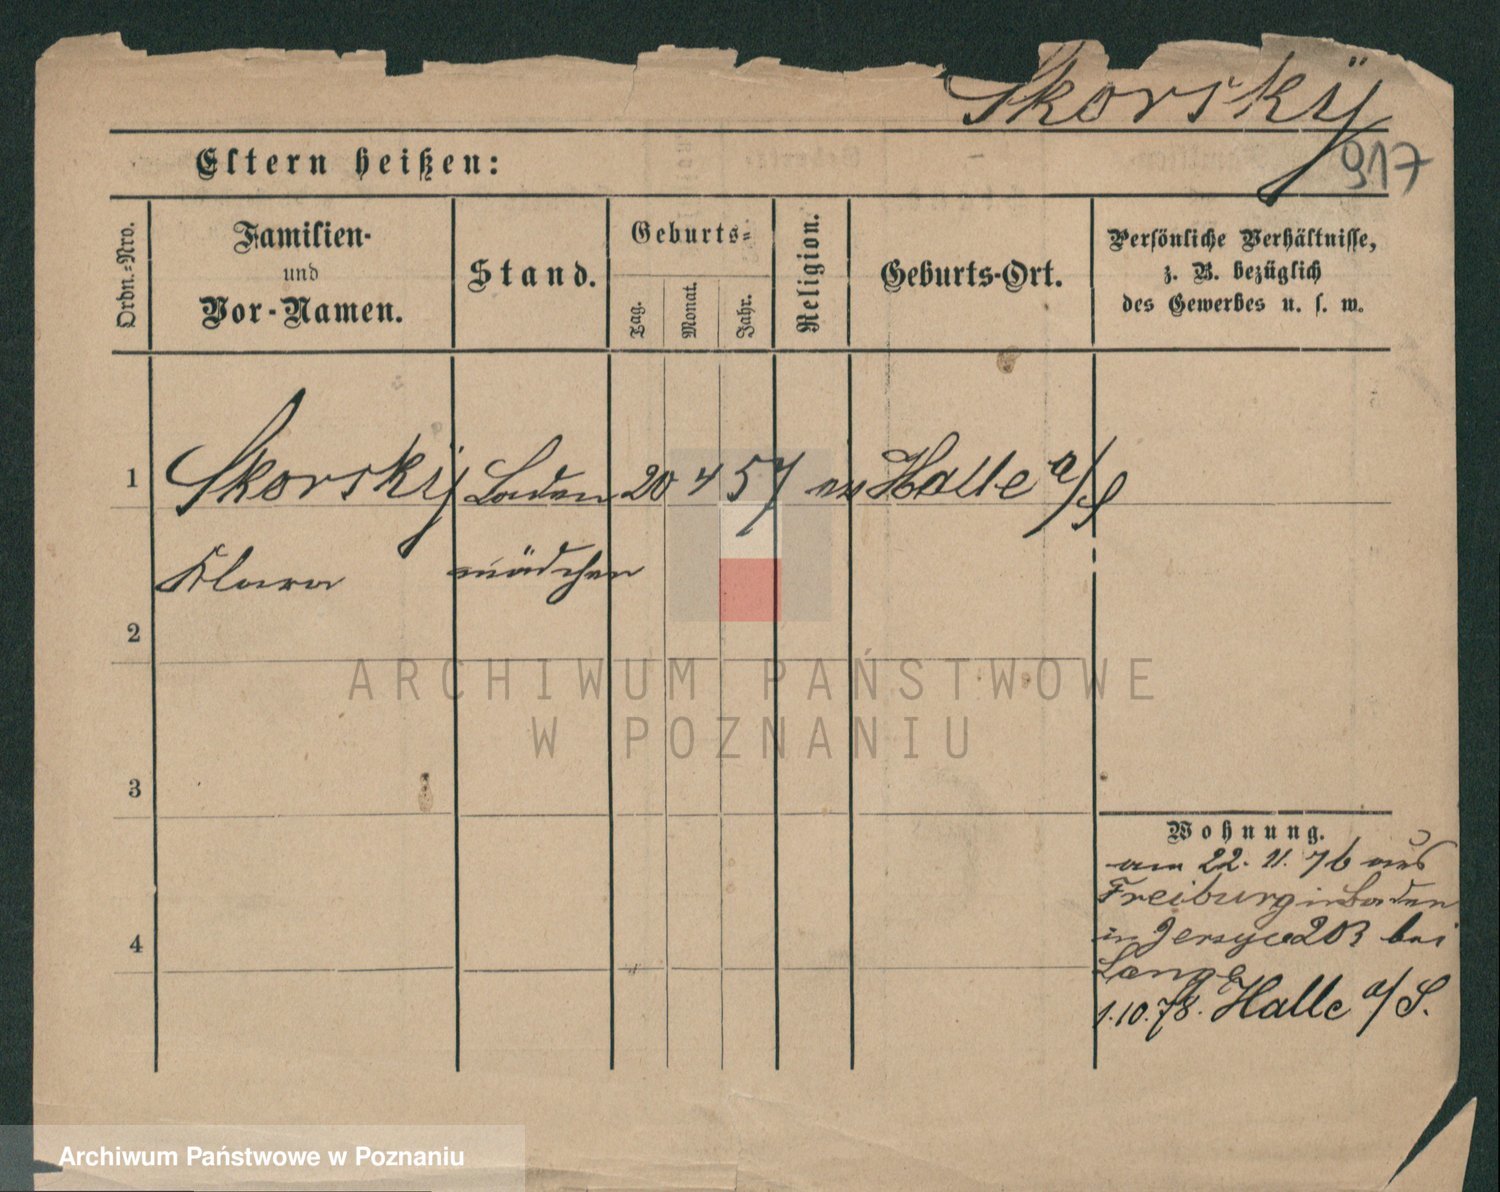 Skorskÿ
917
Eltern heißen:
Ordn.=Nro.
Familien-
und
Vor-Namen.
Stand.
Geburts=
Tag.
Monat.
Jahr.
Religion.
Geburts-Ort.
Persönliche Verhältnisse,
z. B. bezüglich
des Gewerbes u. s. w.
1 Skorskÿ Laden 20 4 57 ev Halle a/S
Klara mädchen
2
ARCHIWUM PAŃSTWOWE
W POZNANIU
3
Wohnung.
am 22. 11. 76 aus
Freiburg in Baden
in Jersyce 203 bei
4
Lange
1.10.78. Halle a/S.
Archiwum Państwowe w Poznaniu